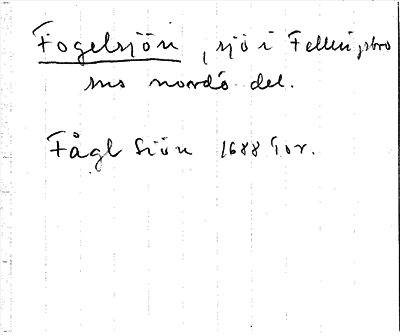 Fogelsjön, sjö i Fellingsbro
sns nordö del.
Fågl Siön 1688 Gor.